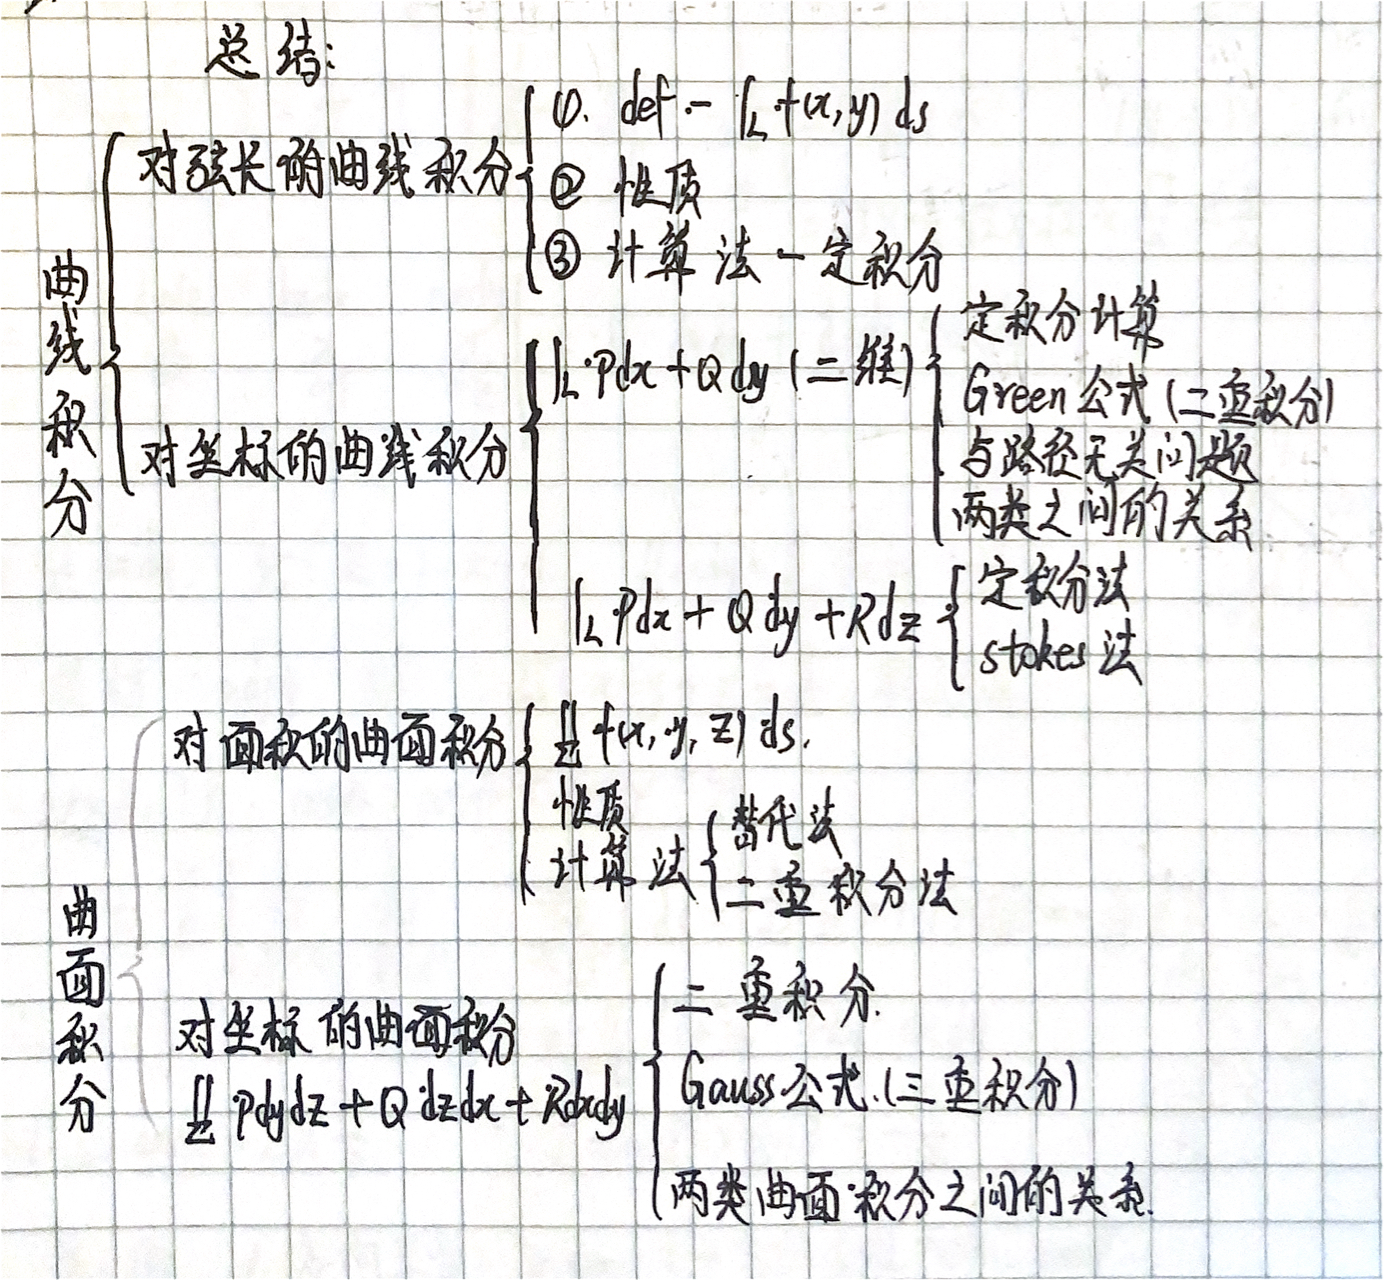 总结:
曲线积分
对弦长的曲线积分
①. def - ∫_L f(x,y) ds
② 性质
③ 计算法 - 定积分
对坐标的曲线积分
∫_L Pdx + Qdy (二维)
定积分计算
Green公式(二重积分)
与路径无关问题
两类之间的关系
∫_L Pdx + Qdy + Rdz
定积分法
stokes法
曲面积分
对面积的曲面积分
∬_Σ f(x,y,z) ds.
性质
计算法
替代法
二重积分法
对坐标的曲面积分
∬_Σ Pdydz + Qdzdx + Rdxdy
二重积分.
Gauss公式.(三重积分)
两类曲面积分之间的关系.